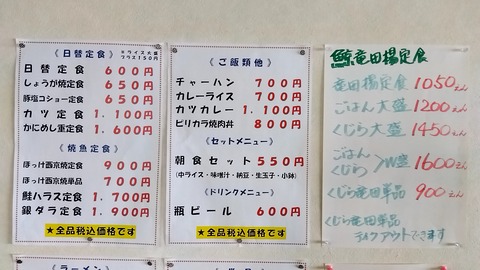 《 日替定食 》
※ライス大盛
プラス150円
日替定食 600円
しょうが焼定食 650円
豚塩コショー定食 650円
カツ定食 1.100円
かにめし重定食 1.600円
《 焼魚定食 》
ほっけ西京焼定食 900円
ほっけ西京焼単品 700円
鮭ハラス定食 1.700円
銀ダラ定食 1.900円
★全品税込価格です
ラーメン
《 ご飯類他 》
チャーハン 700円
カレーライス 700円
カツカレー 1.100円
ピリカラ焼肉丼 800円
《セットメニュー》
朝食セット 550円
(中ライス・味噌汁・納豆・生玉子・小鉢)
《ドリンクメニュー》
瓶ビール 600円
★全品税込価格です
鯨竜田揚定食
竜田揚定食 1050えん
ごはん大盛 1200えん
くじら大盛 1450えん
ごはん
くじら >W盛 1600えん
くじら竜田単品 900えん
くじら竜田単品
テイクアウトできます